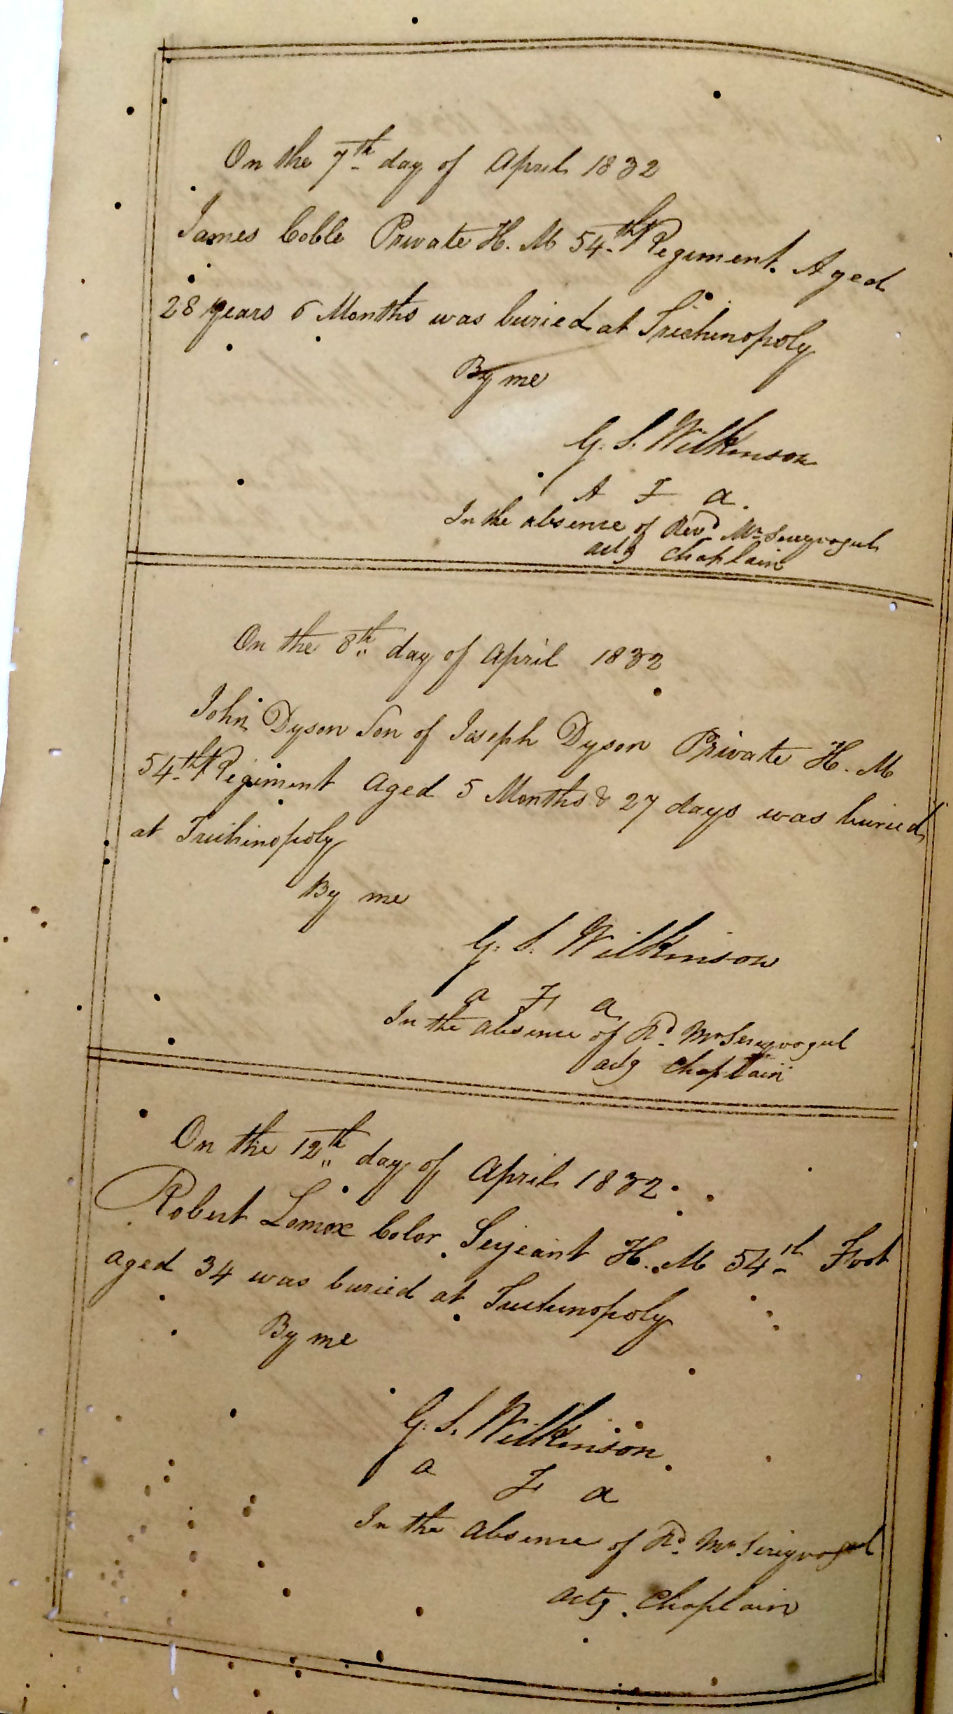 On the 7th day of April 1832
James Coble Private H. M 54th Regiment. Aged
28 years 6 Months was buried at Trichinopoly
By me
G. S. Wilkinson
A F A.
In the absence of Revd Mr Sreyvogul
actg Chaplain
On the 8th day of April 1832
John Dyson Son of Joseph Dyson Private H. M
54th Regiment Aged 5 Months & 27 days was buried
at Trichinopoly
By me
G. S. Wilkinson
a F a
In the absence of Rd. Mr Sreyvogul
actg Chaplain
On the 12th day of April 1832.
Robert Lomox Color Serjeant H. M 54th Foot
aged 34 was buried at Trichinopoly
By me
G. S. Wilkinson.
a F a
In the absence of Rd. Mr
actg. Chaplain